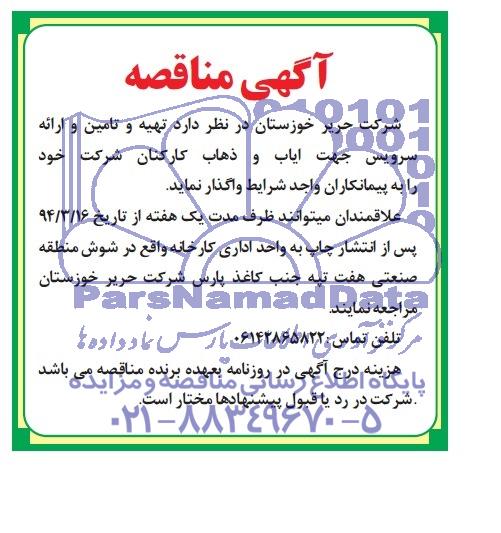 آگهی مناقصه
شرکت حریر خوزستان در نظر دارد تهیه و تامین و ارائه
سرویس جهت ایاب و ذهاب کارکنان شرکت خود
را به پیمانکاران واجد شرایط واگذار نماید.
علاقمندان میتوانند ظرف مدت یک هفته از تاریخ ۹۴/۳/۱۶
پس از انتشار چاپ به واحد اداری کارخانه واقع در شوش منطقه
صنعتی هفت تپه جنب کاغذ پارس شرکت حریر خوزستان
ParsNamadData
مراجعه نمایند.
تلفن تماس: ۰۶۱۴۲۸۶۵۸۲۲
هزینه درج آگهی در روزنامه بعهده برنده مناقصه می باشد
پایگاه اطلاع رسانی مناقصه و مزایده
.شرکت در رد یا قبول پیشنهادها مختار است.
۰۲۱-۸۸۳۴۹۶۷۰-۵